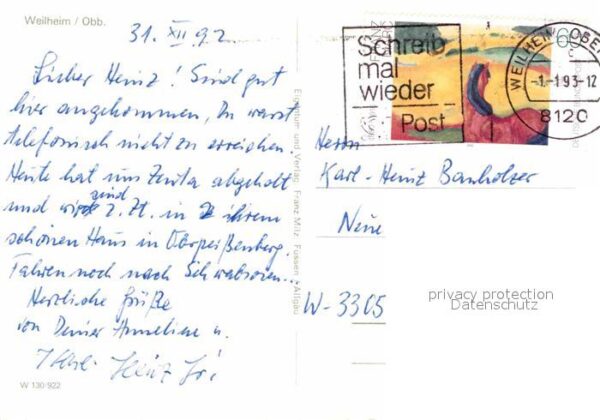 Weilheim / Obb.
31. XII 92
Lieber Heinz! Sind gut
hier angekommen, Du warst
telefonisch nicht zu erreichen.
Heute hat uns Zenta abgeholt
und wir sind z. Zt. in ihrem
schönen Haus in Oberpeißenberg.
Fahren noch nach
Herzliche Grüße
von Deiner Anneliese u.
W 130/922
Franz Milz, Füssen - Allgäu
Schreib
mal
wieder
Post
60
WEILHEIM, OBERB
-1.-1.93-12
8120
Herrn
Karl-Heinz Banholzer
Neue
W-3305
privacy protection
Datenschutz